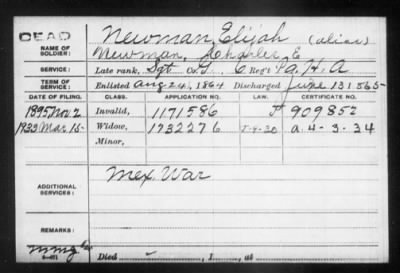 DEAD
NAME OF SOLDIER:
Newman, Elijah (alias)
Newman, Charles E
SERVICE: Late rank, Sgt Co. G, 6 Reg't a. H. A
TERM OF SERVICE: Enlisted Aug 24, 1864 Discharged June 13 1865
DATE OF FILING. CLASS. APPLICATION NO. LAW. CERTIFICATE NO.
1895 Nov 2 Invalid, 1171586 J 909852
1933 Mar 15 Widow, 1732276 5-9-20 a. 4-3-34
Minor,
ADDITIONAL SERVICES:
Mex War
REMARKS:
Died , 1 , at